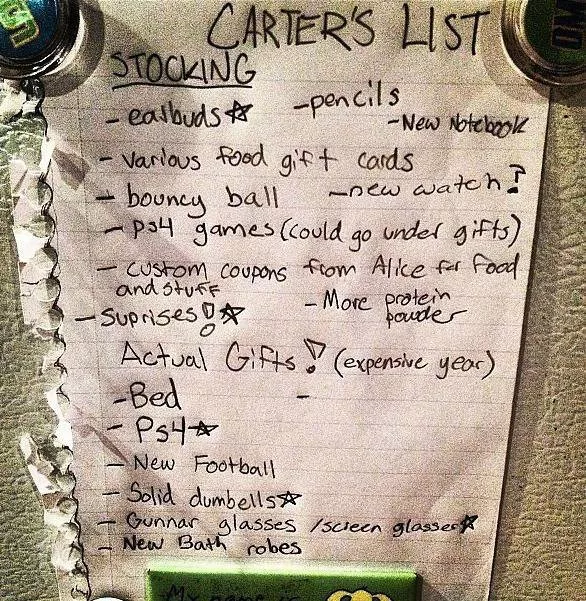 CARTER'S LIST
STOCKING
- earbuds☆ -pencils
-New Notebook
- various food gift cards
- bouncy ball -new watch!
- Ps4 games (could go under gifts)
- custom coupons from Alice for food
and stuff
- More protein
powder
- Suprises!☆
Actual Gifts! (expensive year)
-Bed -
- Ps4☆
- New Football
- Solid dumbells☆
- Gunnar glasses /screen glasses☆
- New Bath robes
My name is